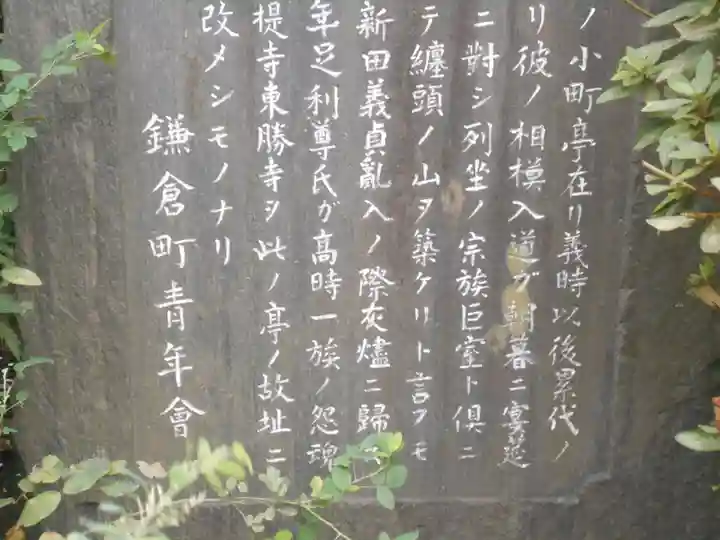 ノ小町亭在リ義時以後累代ノ
リ彼ノ相模入道ガ朝暮ニ宴筵
ニ對シ列坐ノ宗族巨室ト倶ニ
テ纏頭ノ山ヲ築ケリト言フモ
新田義貞亂入ノ際灰燼ニ歸ス
年足利尊氏ガ高時一族ノ怨魂
提寺東勝寺ヲ此ノ亭ノ故址ニ
改メシモノナリ
鎌倉町青年會